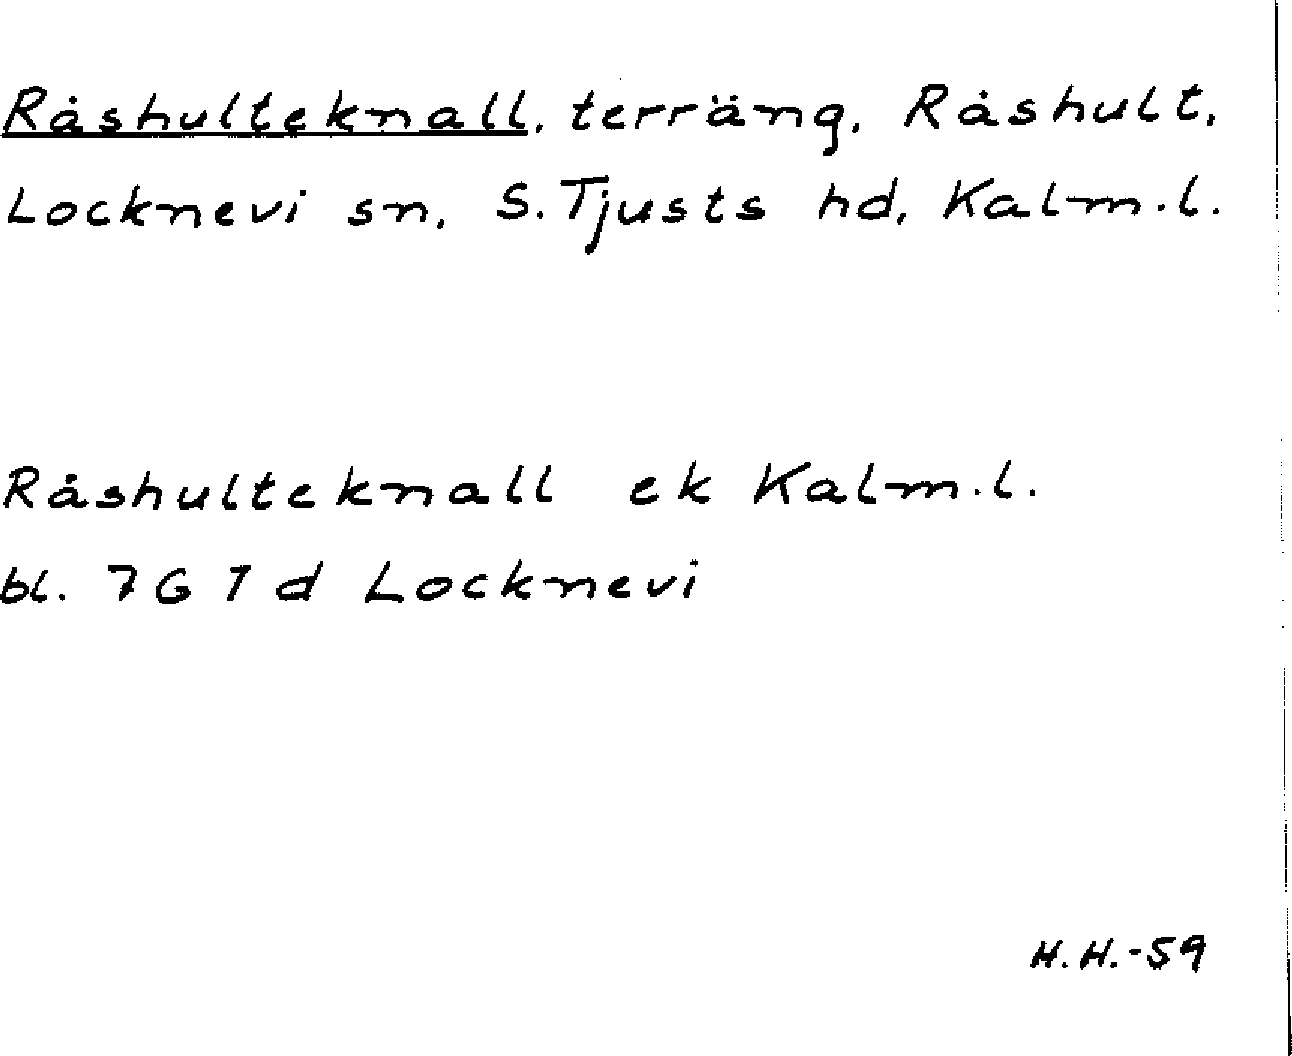 Råshulteknall, terräng, Råshult,
Locknevi sn, S. Tjusts hd, Kalm. l.
Råshulteknall ek Kalm. l.
bl. 7G 1d Locknevi
H. H. - 59